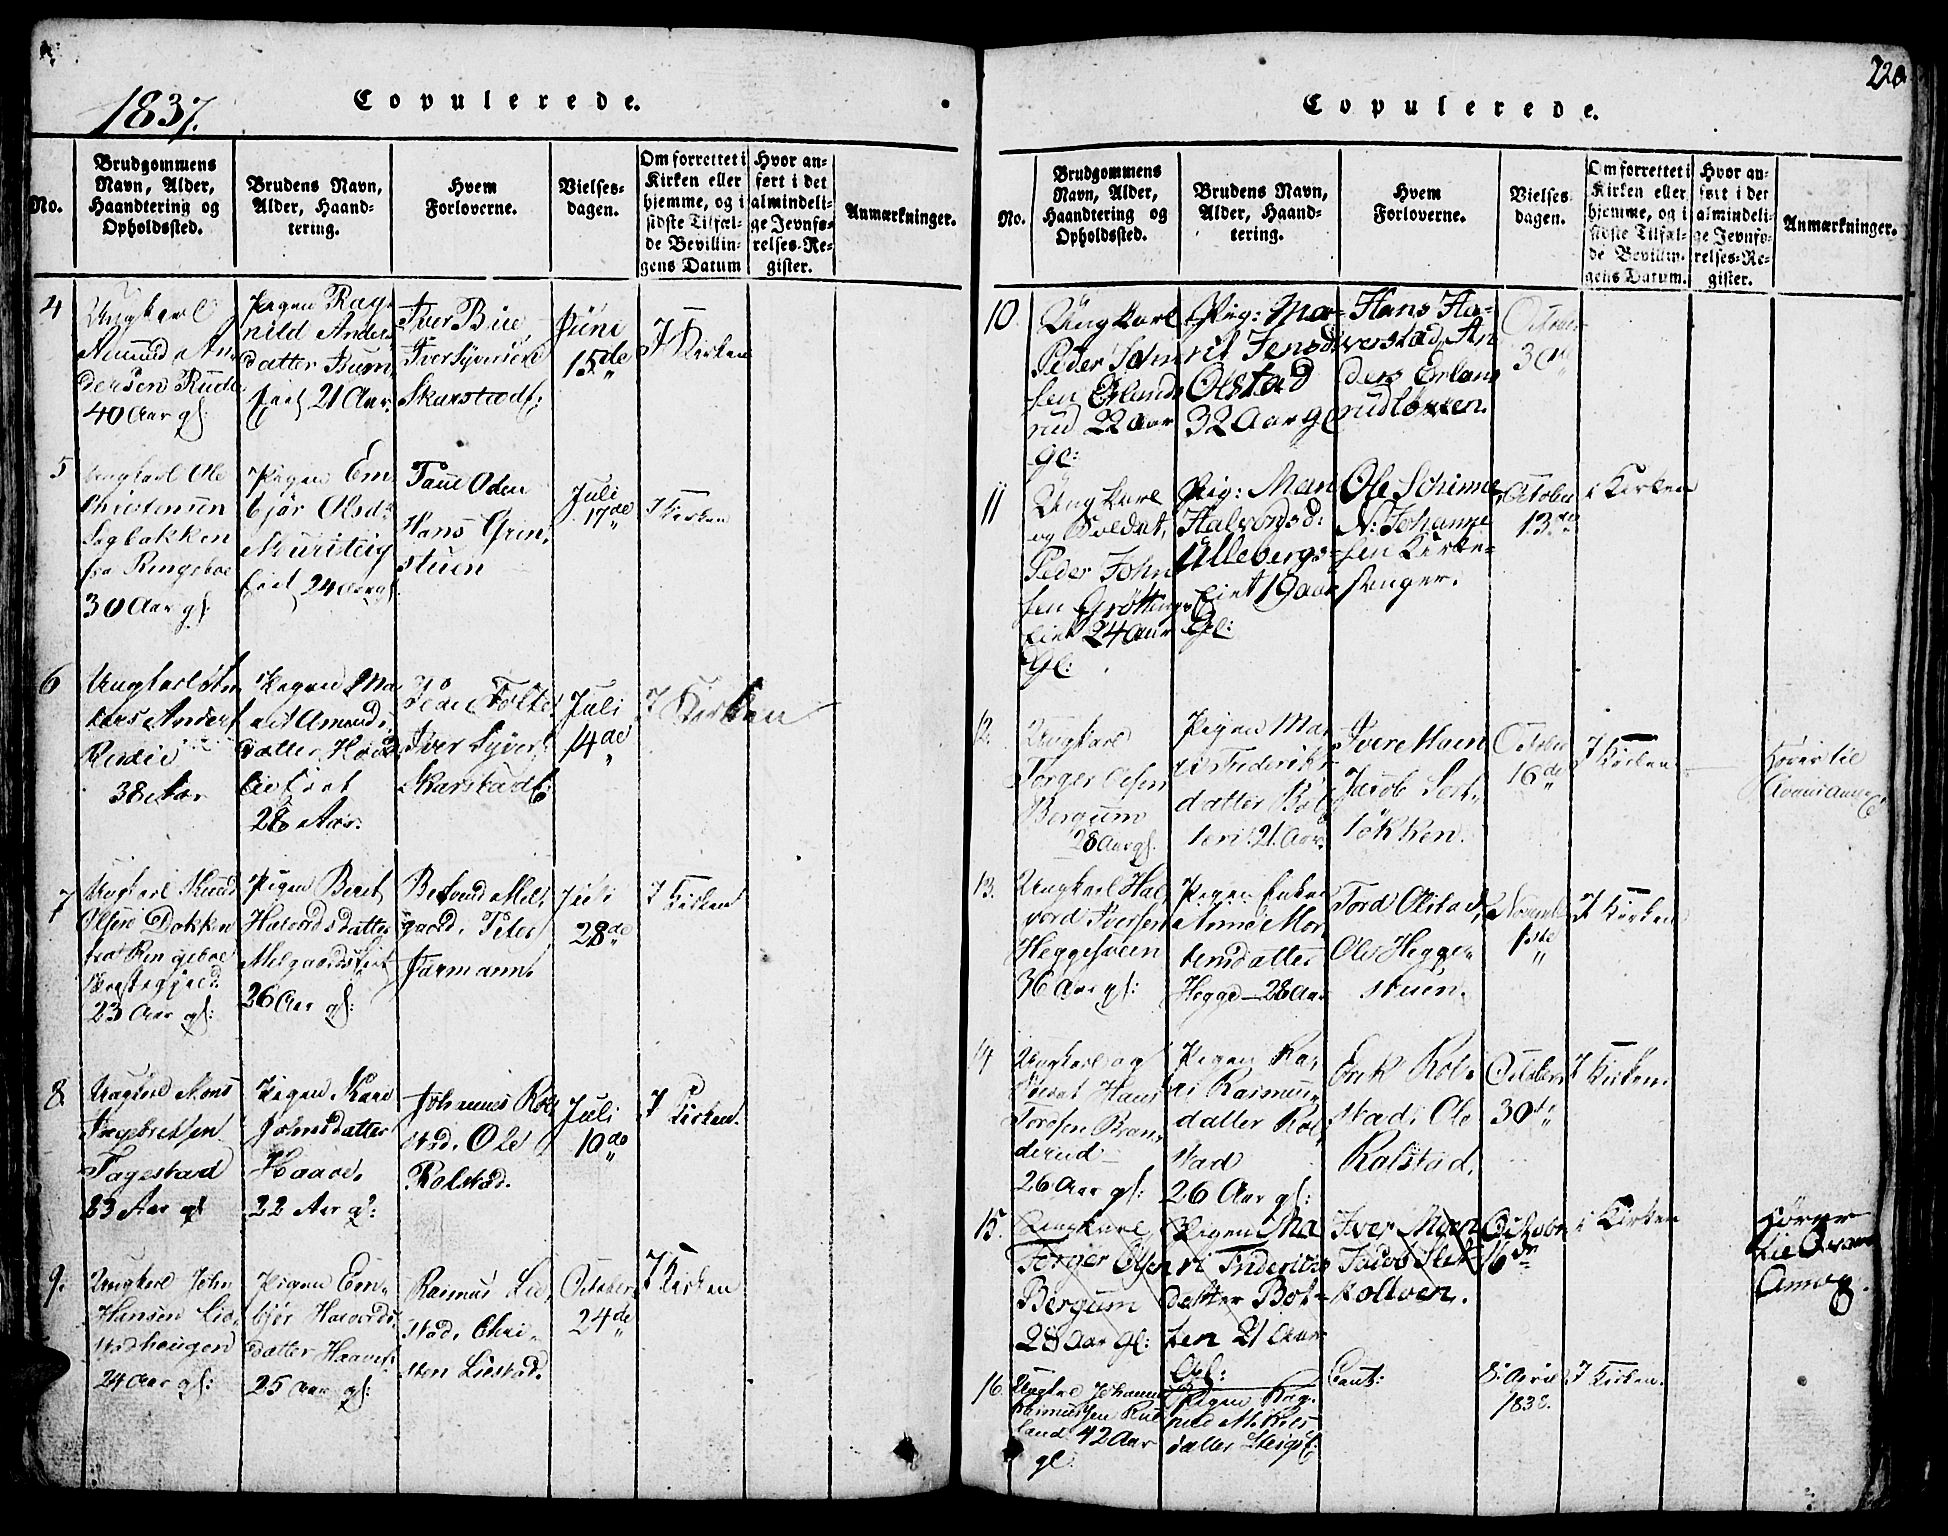 1837.
Copulerede.
No.
Brudgommens
Navn, Alder,
Haandtering og
Opholdssted.
Brudens Navn,
Alder, Haand-
tering.
Hvem
Forloverne.
Vielses-
dagen.
Om forrettet i
Kirken eller
hjemme, og i
sidste Tilfæl-
de Bevillin-
gens Datum
Hvor an-
ført i det
almindeli-
ge Jevnfø-
relses-Re-
gister.
Anmærkninger.
4
Ungkarl
Amund An-
dersen Rude
40 Aar gl:
Pigen Rag-
nild Anders-
datter
Eiet 21 Aar.
Iver Bue
Iver Syversen
Skarstad
Juni
15de
I Kirken
5
Ungkarl Ole
Christensen
Bagbakken
fra Ringeboe
30 Aar gl:
Pigen Em-
bjør Olsd:
Eiet 24 Aar gl.
Oden
Hans Grin-
stuen
Juli
17de
I Kirken
6
Ungkarl
Anders
38 Aar
Pigen Ma-
rit Amund-
datter
Eiet
28 Aar.
Peder
Iver Syver
Skarstad
Juli
14de
I Kirken
7
Ungkarl Knud
Olsen Bakken
fra Ringeboe
Præstegjeld
23 Aar gl:
Pigen Berit
Halvordsdatter
Melgaards Eiet
26 Aar gl:
Melgaard, Peter
Formann
Juli
28de
I Kirken
8
Ungkarl Mons
Ingbretsen
Fagestad
23 Aar gl
Pigen Kari
Johnsdatter
Haave.
22 Aar gl:
Johannes Rol-
stad. Ole
Rolstad.
Juli
10de
I Kirken.
9.
Ungkarl John
Hansen Lie-
stadhaugen
24 Aar gl:
Pigen Em-
bjør Halvords-
datter Haave
25 Aar gl:
Rasmus Lie-
stad. Chri-
sten Liestad.
October
24de
I Kirken
220
Copulerede.
No.
Brudgommens
Navn, Alder,
Haandtering og
Opholdssted.
Brudens Navn,
Alder, Haand-
tering.
Hvem
Forloverne.
Vielses-
dagen.
Om forrettet i
Kirken eller
hjemme, og i
sidste Tilfæl-
de Bevillin-
gens Datum.
Hvor an-
ført i det
almindeli-
ge Jevnfø-
relses-Re-
gister.
Anmærkninger.
10.
Ungkarl
Peder John-
sen Erland-
rud 22 Aar
gl:
Pig: Ma-
rit Jensd:
Olstad
32 Aar gl
Hans Ha-
verstad, An-
ders Erlan-
rudløkken.
October
30
11
Ungkarl
og Soldat,
Peder John-
sen Grøttings
Eiet 24 Aar
Gl:
Pig: Mari
Halvorsd:
Ullebergs-
Eiet 19 aar
Gl:
Ole Schinne
N: Johanne-
sen Kirke-
sanger.
October
13de
i Kirken
12.
Ungkarl
Torger Olsen
Bergum
28 Aar gl.
Pigen Ma-
ri Frederiks-
datter
21 Aar.
Iver Moen
Jacob Slet-
løkken.
October
16de
I Kirken
Hører til
13.
Ungkarl Hal-
vord Iversen
Heggesveen
36 Aar gl:
Pigen Enken
Anne Mor-
tensdatter
Hegge 28 Aar
Tord Olstad,
Ole Hegge-
stuen.
November
1ste
I Kirken
14
Ungkarl og
Soldat Hans
Tordsen Bran-
derud
26 Aar gl:
Pigen Ka-
ri Rasmus-
datter Rol-
stad
26 Aar gl:
Erik Rol-
stad, Ole
Rolstad.
October
30te
I Kirken.
15.
Ungkarl
Torger Olsen
Bergum
28 Aar gl:
Pigen Ma
ri Frideriks
datter Bot-
ten 21 Aar
Gl:
Iver Moen
Jacob Slet-
October
16de
i Kirken
Hører
til
16.
Ungkarl Johannes
Rasmussen Rud-
land 42 Aar
gl.
Pigen Rag-
nild
datter
Cant:
8. April
1838.
I Kirken.